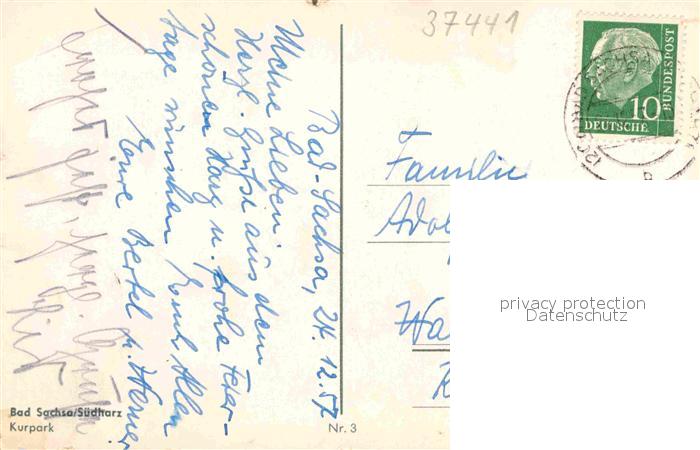 37441
Bad-Sachsa, 24.12.57
Meine Lieben!
Herzl. Grüße aus dem
schönen Harz u. frohe Feier-
tage wünschen Euch Allen
Eure Bertel u. Werner
Familie
Adol
Wa
DEUTSCHE
BUNDESPOST
10
privacy protection
Datenschutz
Bad Sachsa/Südharz
Kurpark
Nr. 3